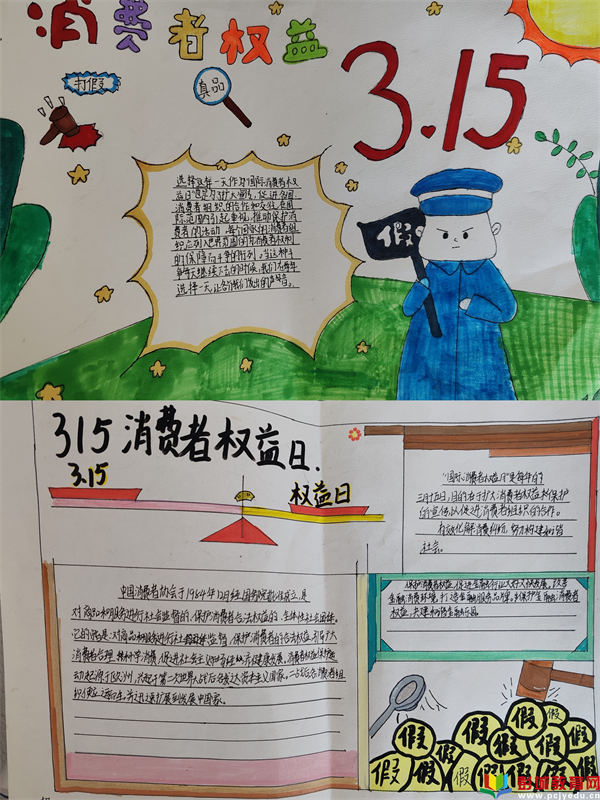 消费者权益
3.15
打假
真品
选择这样一天作为"国际消费者权
益日"也是为了扩大宣传,促进各国
消费者组织的合作和交往,在国
际范围内引起重视,推动保护消
费者的活动。每个国家的消费者组
选择一天,让各
假
315消费者权益日.
3.15
权益日
"国际消费者权益日"是每年的
三月十五日,目的在于扩大消费者权益
的宣传,以促进消费者组织的合作。
有效化解消费纠纷,努力构建和谐
社会。
保护消费者权益,促进金融
权益,共建和谐金融乐园。
中国消费者协会于1984年12月经国务院批准成立,是
对商品和服务进行社会监督的,保护消费者合法权益的,全国性社会团体。
它的宗旨是:对商品和服务进行社会监督,保护消费者的合法权益,引导广大
消费者合理、科学消费,促进社会主义市场经济健康发展。
织
假
假
假
假
假
假
假
假
假
假
假
彭城教育网
www.pcjyedu.cn